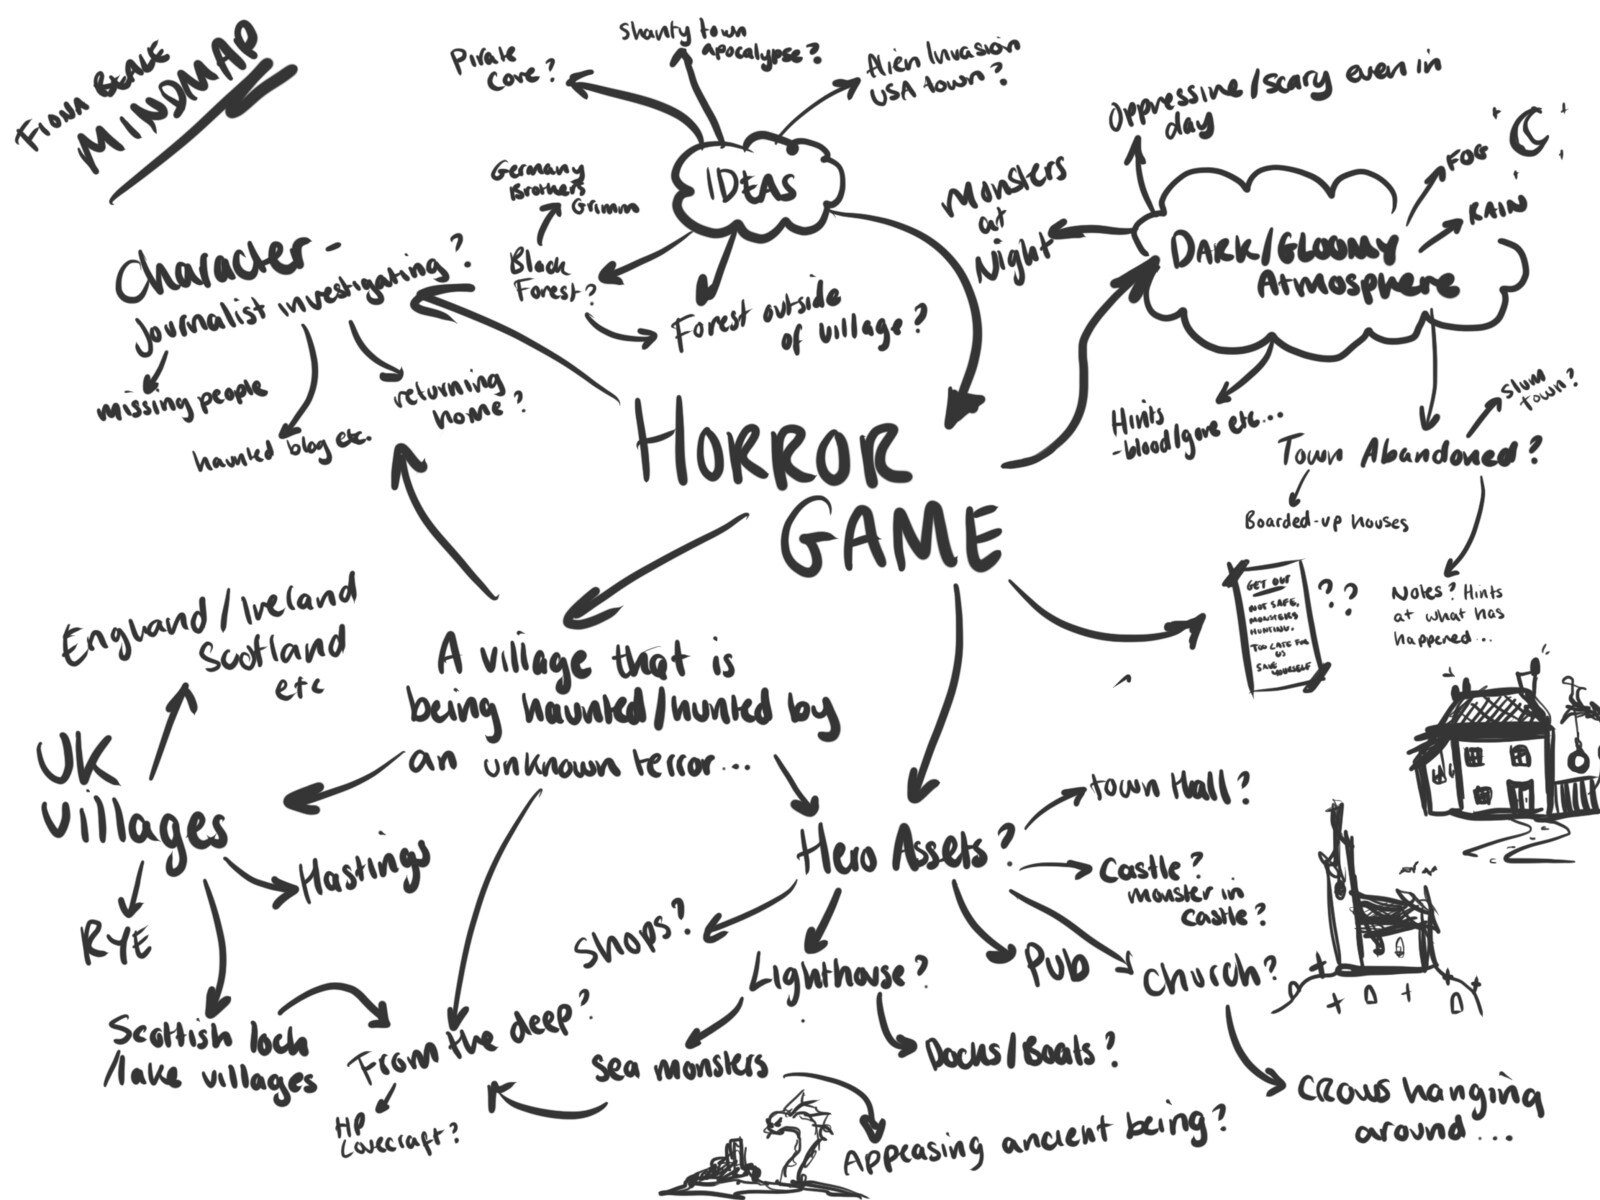 FIONA BEALE
MINDMAP
Pirate
Cove?
Shanty town
apocalypse?
Alien Invasion
USA town?
IDEAS
Germany
Brothers
Grimm
Black
Forest?
Forest outside
of village?
Character -
Journalist investigating?
missing people
haunted blog etc.
returning
home?
Oppressive/scary even in
day
Monsters
at
Night
FOG
RAIN
DARK/GLOOMY
Atmosphere
Hints
-blood/gore etc...
Town Abandoned?
slum
town?
Boarded-up houses
Notes? Hints
at what has
happened...
GET OUT
NOT SAFE,
MONSTERS
HUNTING.
TOO LATE FOR
US
SAVE
YOURSELF
??
HORROR
GAME
A village that is
being haunted/hunted by
an unknown terror...
England/Ireland
Scotland
etc
UK
Villages
Hastings
RYE
Scottish loch
/lake villages
From the deep?
HP
Lovecraft?
Hero Assets?
town Hall?
Castle?
monster in
castle?
Shops?
Lighthouse?
Pub
Church?
Sea monsters
Docks/Boats?
Appeasing ancient being?
Crows hanging
around...